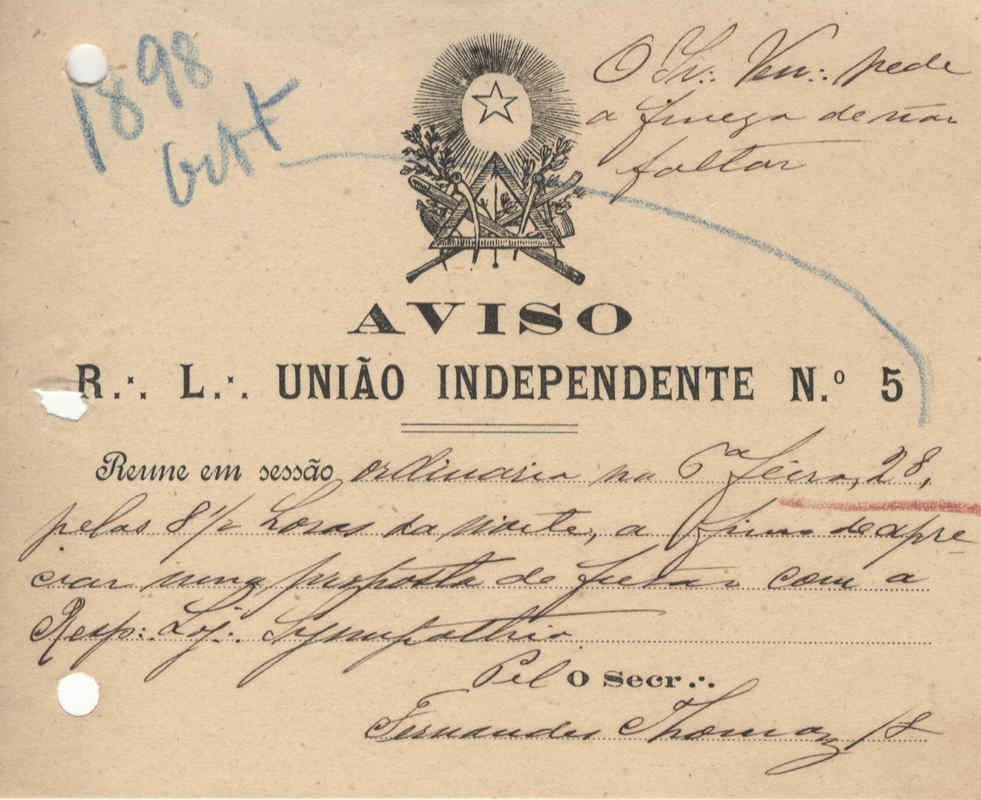 1898
Out
O Ir∴ Ven∴ pede
a fineza de não
faltar
AVISO
R∴ L∴ UNIÃO INDEPENDENTE N.º 5
Reune em sessão ordinaria na 6ª feira, 28,
pelas 8½ horas da noite, a fim de apre
ciar uma proposta de fusão com a
Resp∴ Loj∴ Sympathia
Pel O Secr∴
Fernandes Thomaz